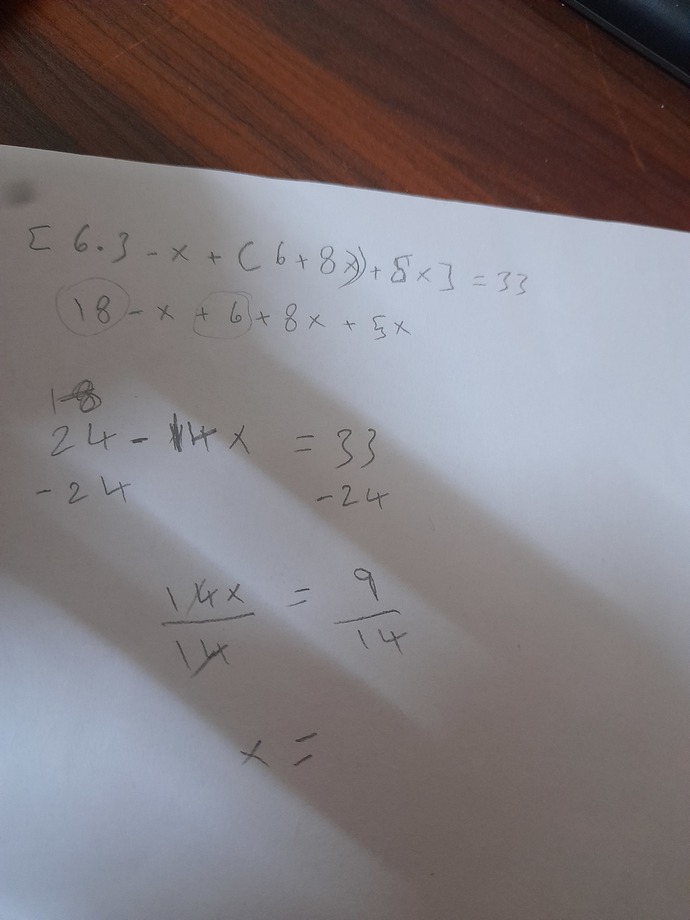 [ 6.3 - x + ( 6 + 8x) + 5x ] = 33
18 - x + 6 + 8x + 5x
18
24 - 14x = 33
-24 -24
14x = 9
14 14
x =